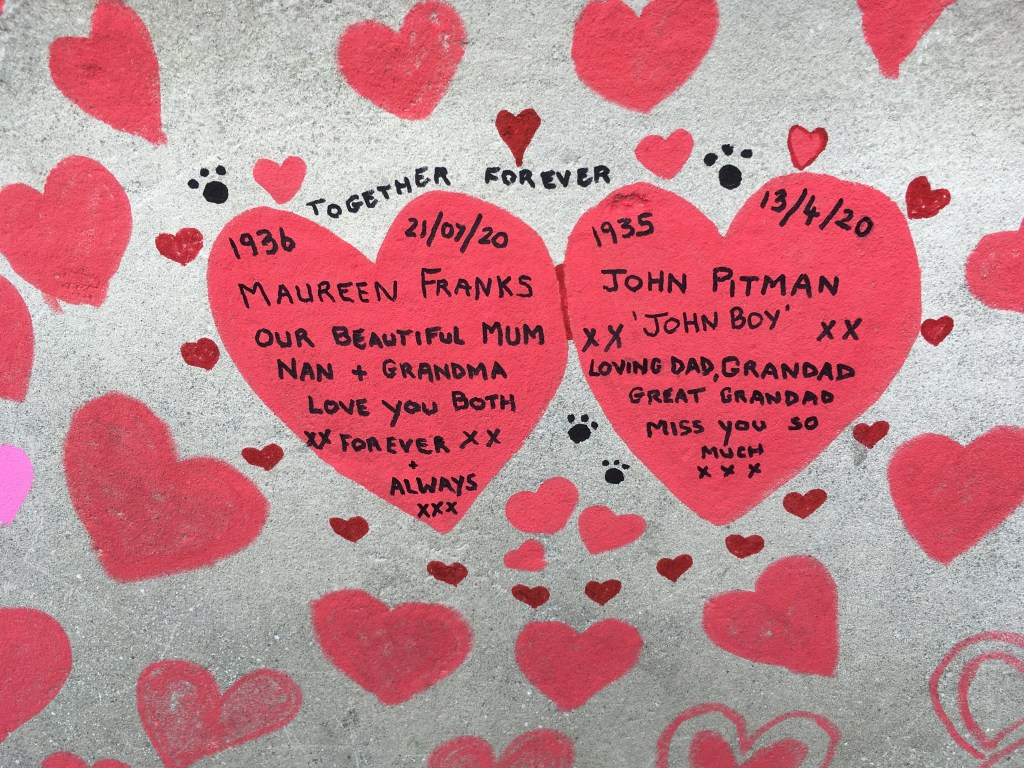 TOGETHER FOREVER
1936 21/07/20
MAUREEN FRANKS
OUR BEAUTIFUL MUM
NAN + GRANDMA
LOVE YOU BOTH
XX FOREVER X X
+
ALWAYS
XXX
1935 13/4/20
JOHN PITMAN
X X 'JOHN BOY' X X
LOVING DAD, GRANDAD
GREAT GRANDAD
MISS YOU SO
MUCH
X X X